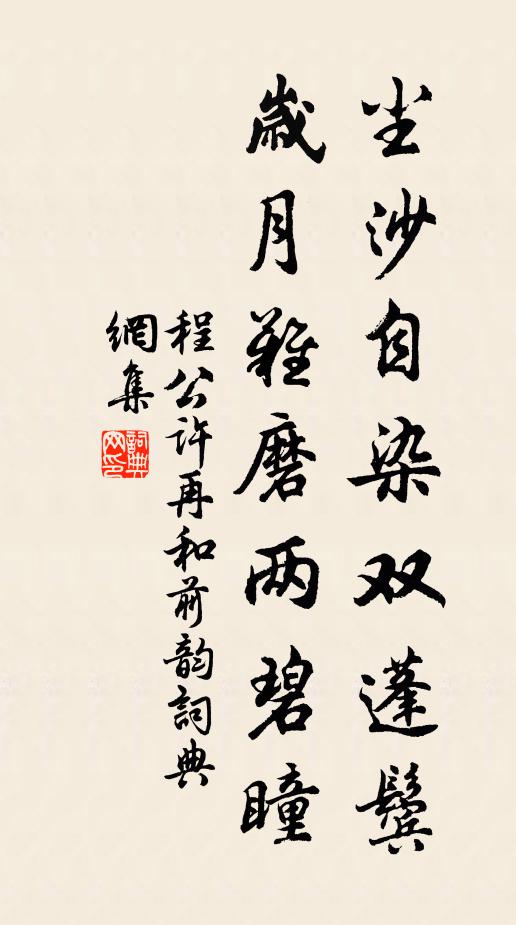 尘沙自染双蓬鬓
歳月難磨两碧瞳
程公许再和前韵詞典
網集
詞典
网印